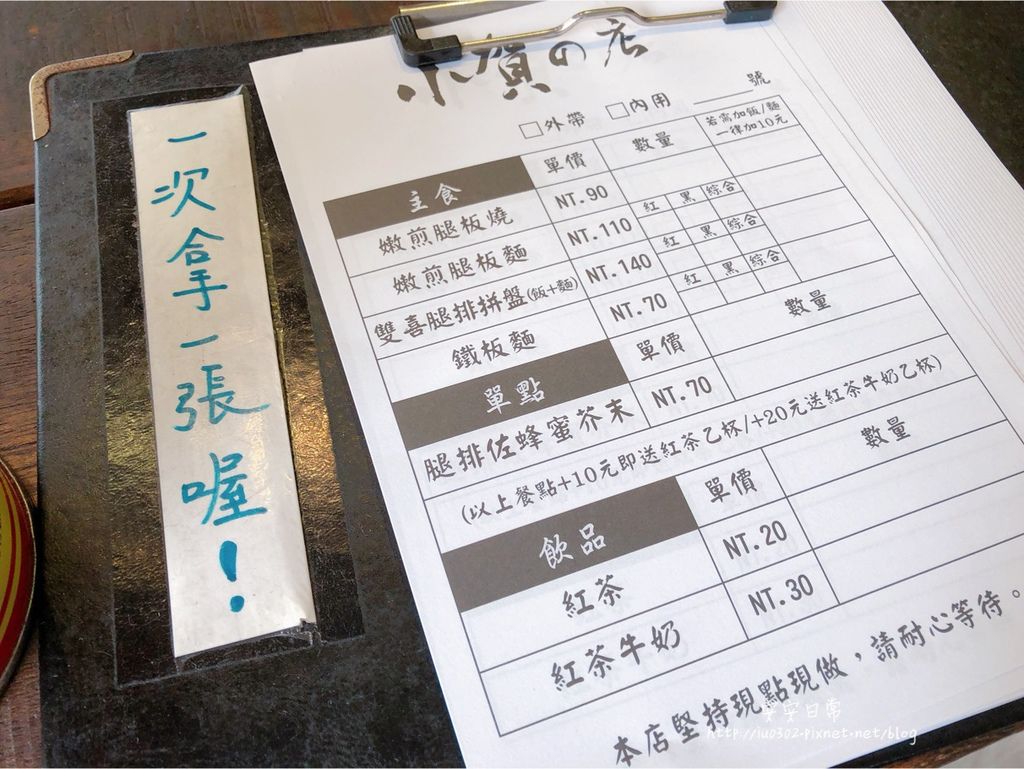 一次拿一張喔！
小賀の店
□外帶 □內用 ______號
主食 單價 數量 若需加飯/麵一律加10元
嫩煎腿板燒 NT.90
嫩煎腿板麵 NT.110 紅 黑 綜合
雙喜腿排拼盤(飯+麵) NT.140 紅 黑 綜合
鐵板麵 NT.70 紅 黑 綜合
單點 單價 數量
腿排佐蜂蜜芥末 NT.70
(以上餐點+10元即送紅茶乙杯/+20元送紅茶牛奶乙杯)
飲品 單價 數量
紅茶 NT.20
紅茶牛奶 NT.30
本店堅持現點現做，請耐心等待。
安日常
http://iu0302.pixnet.net/blog